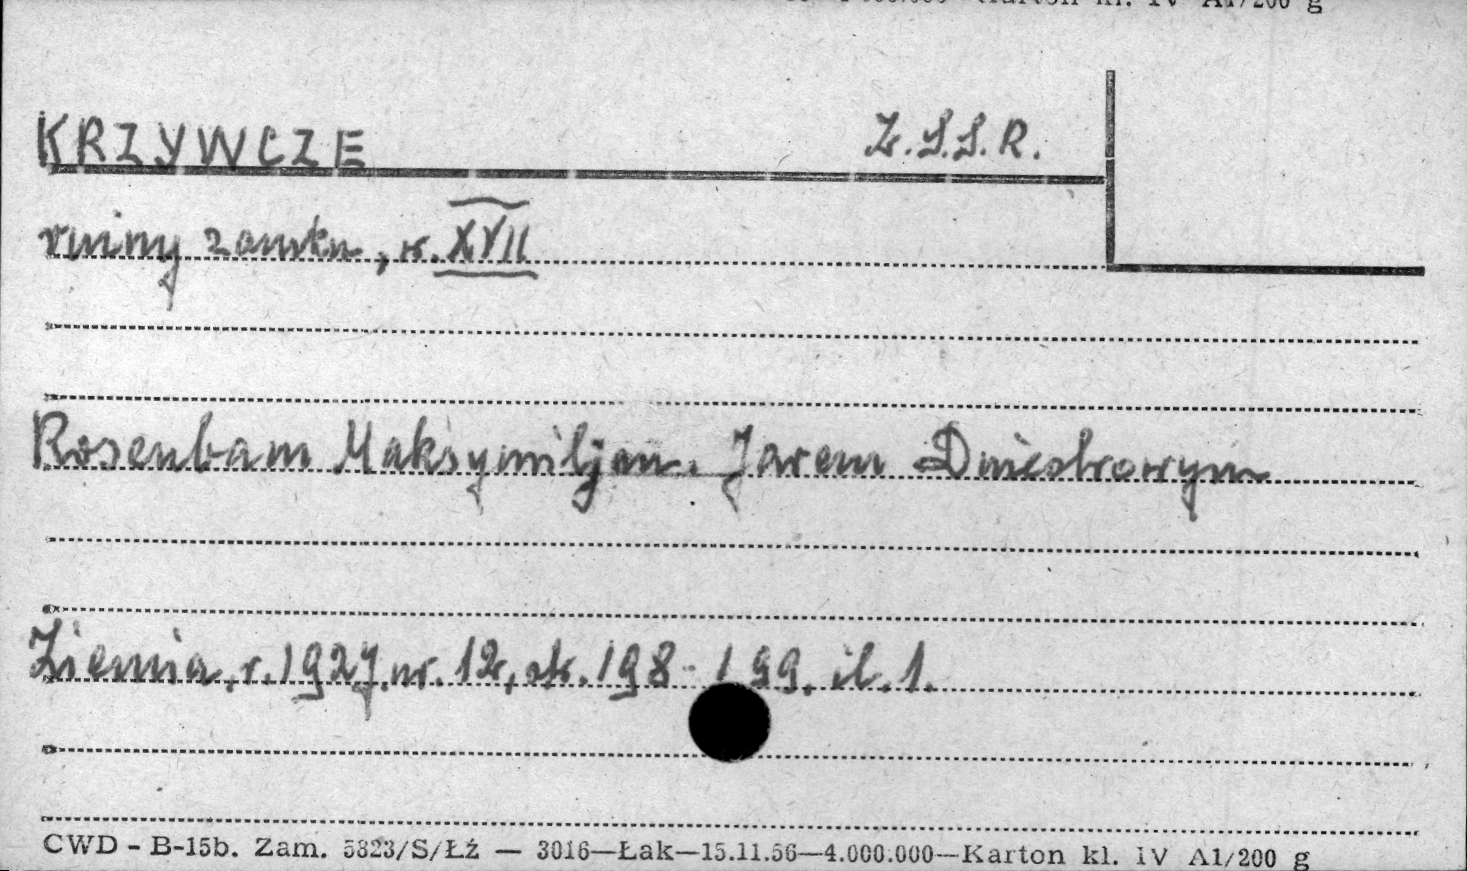 Karton kl. IV A1/200 g
KRZYWCZE Z.S.S.R.
ruiny zamku, w. XVII
Rosenbam Maksymiljan. Jarem Dniestrowym
Ziemia, r. 1927, nr. 12, str. 198-199, il. 1.
CWD - B-15b. Zam. 5323/S/Łź — 3016—Łak—15.11.56—4.000.000—Karton kl. IV A1/200 g